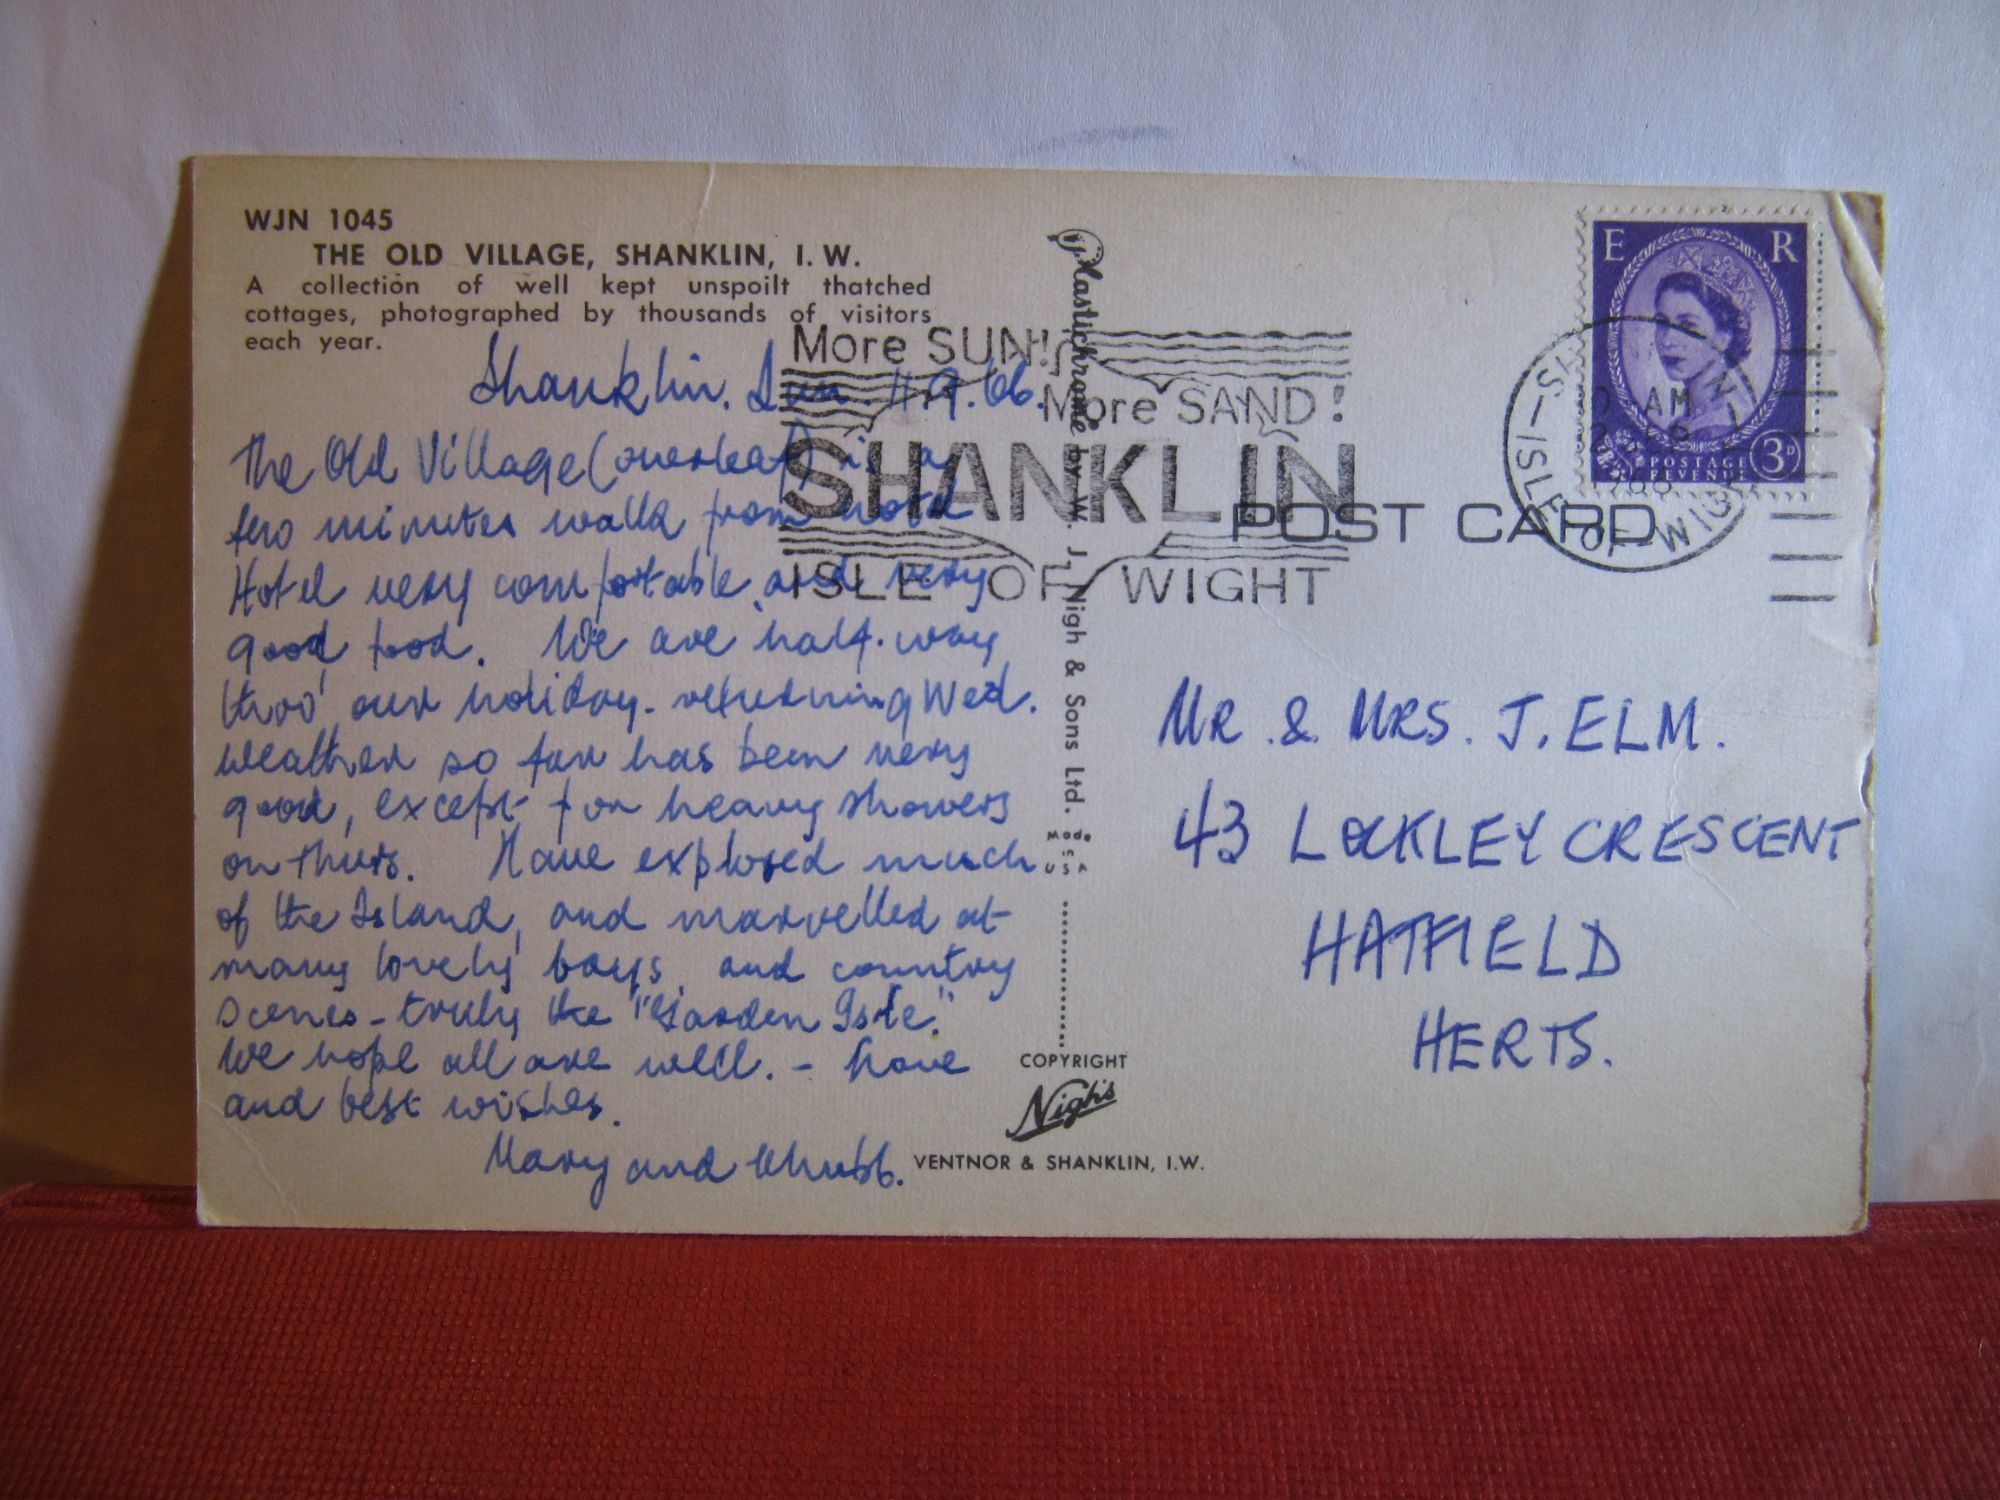 WJN 1045
THE OLD VILLAGE, SHANKLIN, I. W.
A collection of well kept unspoilt thatched
cottages, photographed by thousands of visitors
each year.
Shanklin. Sun. 11.9.66.
The Old Village (overleaf) is a
few minutes walk from hotel
Hotel very comfortable and very
good food. We are half-way
thro' our holiday - returning Wed.
Weather so far has been very
good, except for heavy showers
on Thurs. Have explored much
of the Island, and marvelled at
many lovely bays, and country
scenes - truly the "Garden Isle."
We hope all are well. - Love
and best wishes.
Mary and Chubb.
More SUN!
More SAND!
SHANKLIN
ISLE OF WIGHT
Plastichrome by W. J. Nigh & Sons Ltd.
Made
in
USA
COPYRIGHT
Nigh's
VENTNOR & SHANKLIN, I.W.
E R
POSTAGE
REVENUE
3D
AM
ISLE OF WIGHT
POST CARD
MR. & MRS. J. ELM.
43 LOCKLEY CRESCENT
HATFIELD
HERTS.